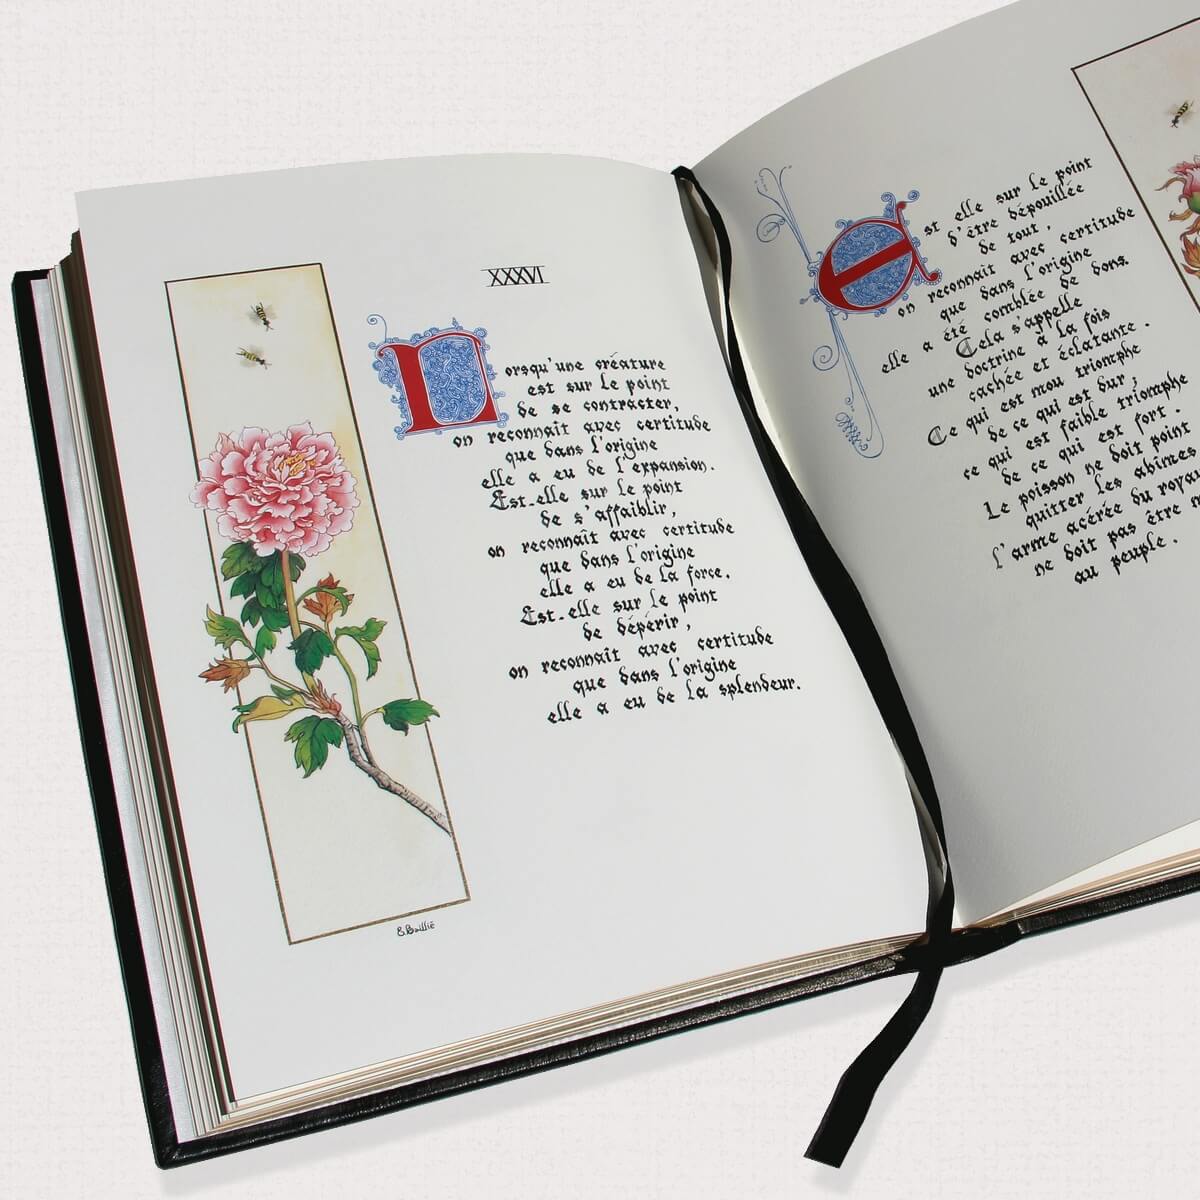 XXXVI
Lorsqu'une créature
est sur le point
de se contracter,
on reconnaît avec certitude
que dans l'origine
elle a eu de l'expansion.
Est-elle sur le point
de s'affaiblir,
on reconnaît avec certitude
que dans l'origine
elle a eu de la force.
Est-elle sur le point
de dépérir,
on reconnaît avec certitude
que dans l'origine
elle a eu de la splendeur.
B. Baillie
Est elle sur le point
d'être dépouillée
de tout,
on reconnait avec certitude
que dans l'origine
elle a été comblée de dons.
Cela s'appelle
une doctrine à la fois
cachée et éclatante.
Ce qui est mou triomphe
de ce qui est dur,
ce qui est faible triomphe
de ce qui est fort.
Le poisson ne doit point
quitter les abîmes
l'arme acérée du
ne doit pas être
au peuple.